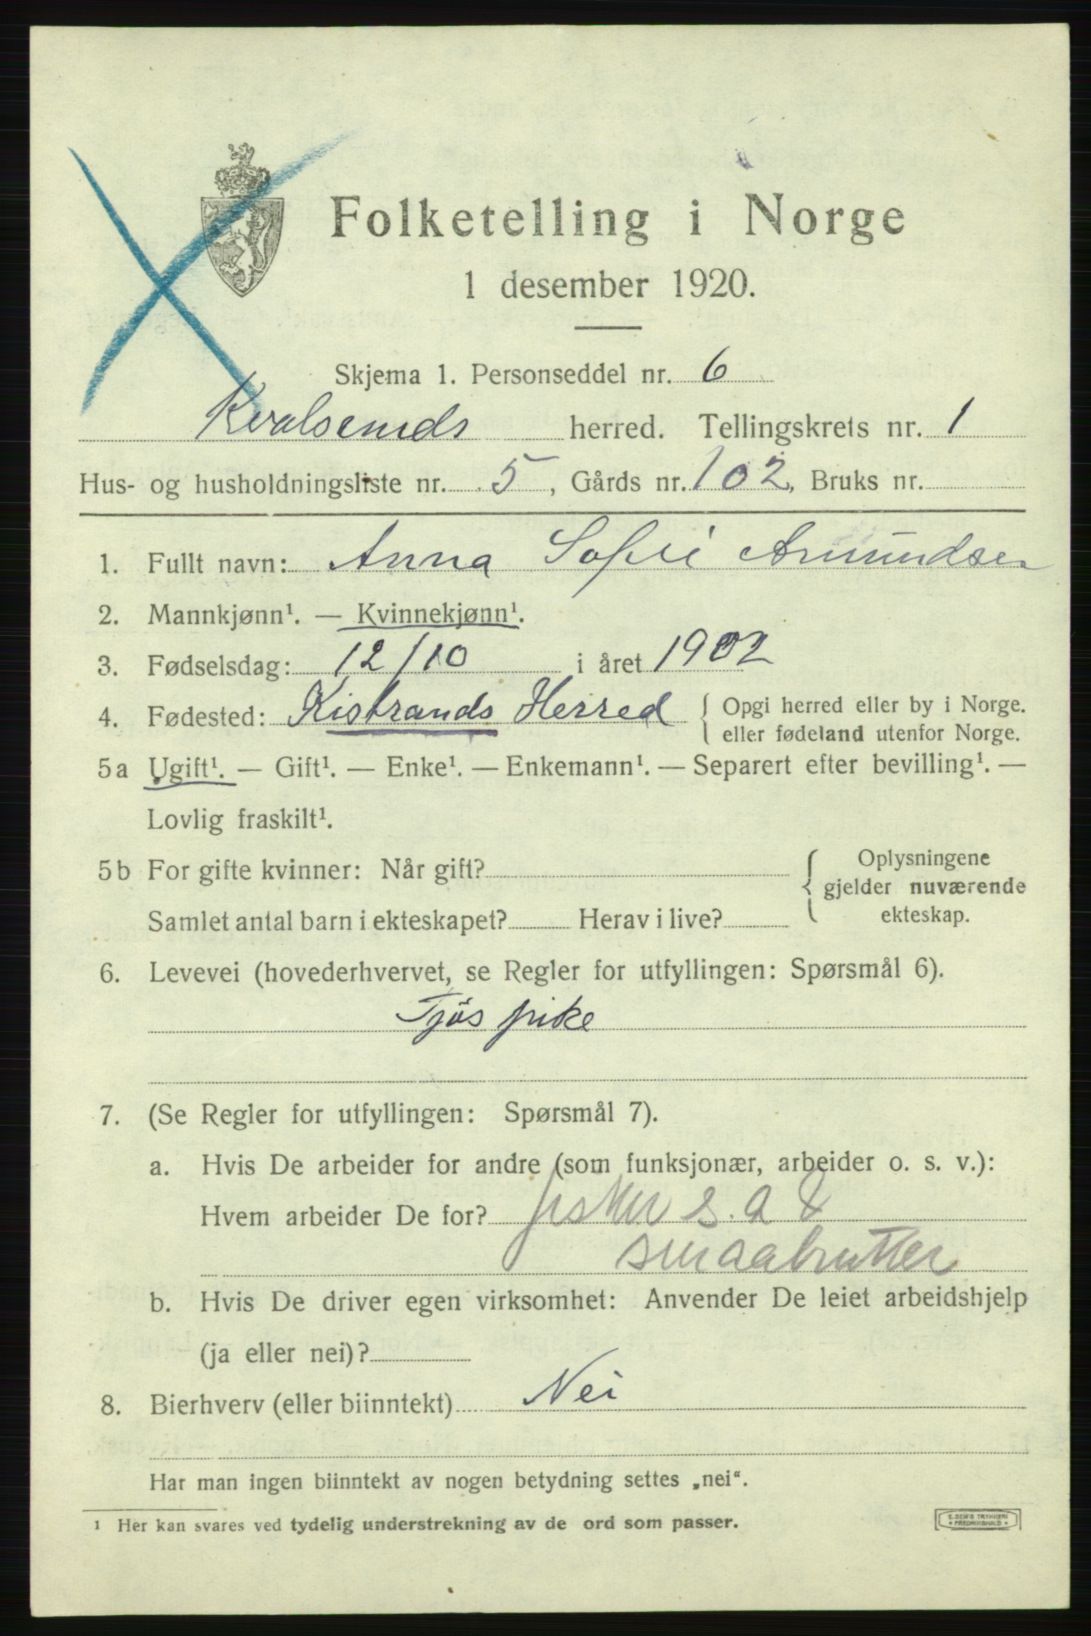 Folketelling i Norge
1 desember 1920.
Skjema 1. Personseddel nr. 6
Kvalsunds herred. Tellingskrets nr. 1
Hus- og husholdningsliste nr. 5, Gårds nr. 102, Bruks nr.
1. Fullt navn: Anna Sofie Amundsen
2. Mannkjønn¹. — Kvinnekjønn¹.
3. Fødselsdag: 12/10 i året 1902
4. Fødested: Kistrands Herred { Opgi herred eller by i Norge.
eller fødeland utenfor Norge.
5a Ugift¹. — Gift¹. — Enke¹. — Enkemann¹. — Separert efter bevilling¹. —
Lovlig fraskilt¹.
5b For gifte kvinner: Når gift? { Oplysningene
gjelder nuværende
Samlet antal barn i ekteskapet? Herav i live? ekteskap.
6. Levevei (hovederhvervet, se Regler for utfyllingen: Spørsmål 6).
Tjøs pike
7. (Se Regler for utfyllingen: Spørsmål 7).
a. Hvis De arbeider for andre (som funksjonær, arbeider o. s. v.):
Hvem arbeider De for? fisker s. a &
smaabruker
b. Hvis De driver egen virksomhet: Anvender De leiet arbeidshjelp
(ja eller nei)?
8. Bierhverv (eller biinntekt) Nei
Har man ingen biinntekt av nogen betydning settes „nei“.
¹ Her kan svares ved tydelig understrekning av de ord som passer.